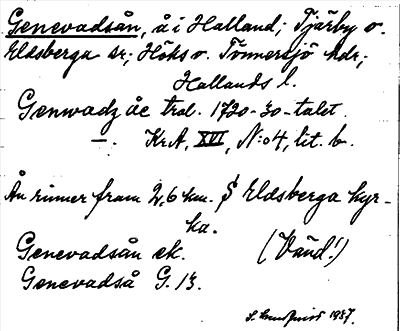 Genevadsån, å i Halland; Tjärby o.
Eldsberga sr; Höks o. Tönnersjö hdr;
Hallands l.
Genwadz åe trol. 1720-30-talet.
—. KrA, XVI, N:o 4, lit. b.
Ån rinner fram 2,6 km. S Eldsberga kyr-
ka.
Genevadsån ek. (Vänd!)
Genevadså G. 13.
1937.